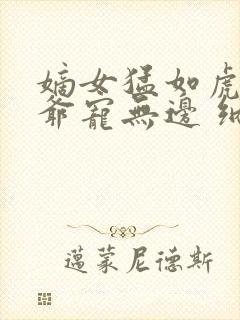 嫡女猛如虎
爺寵無邊
邁蒙尼德斯